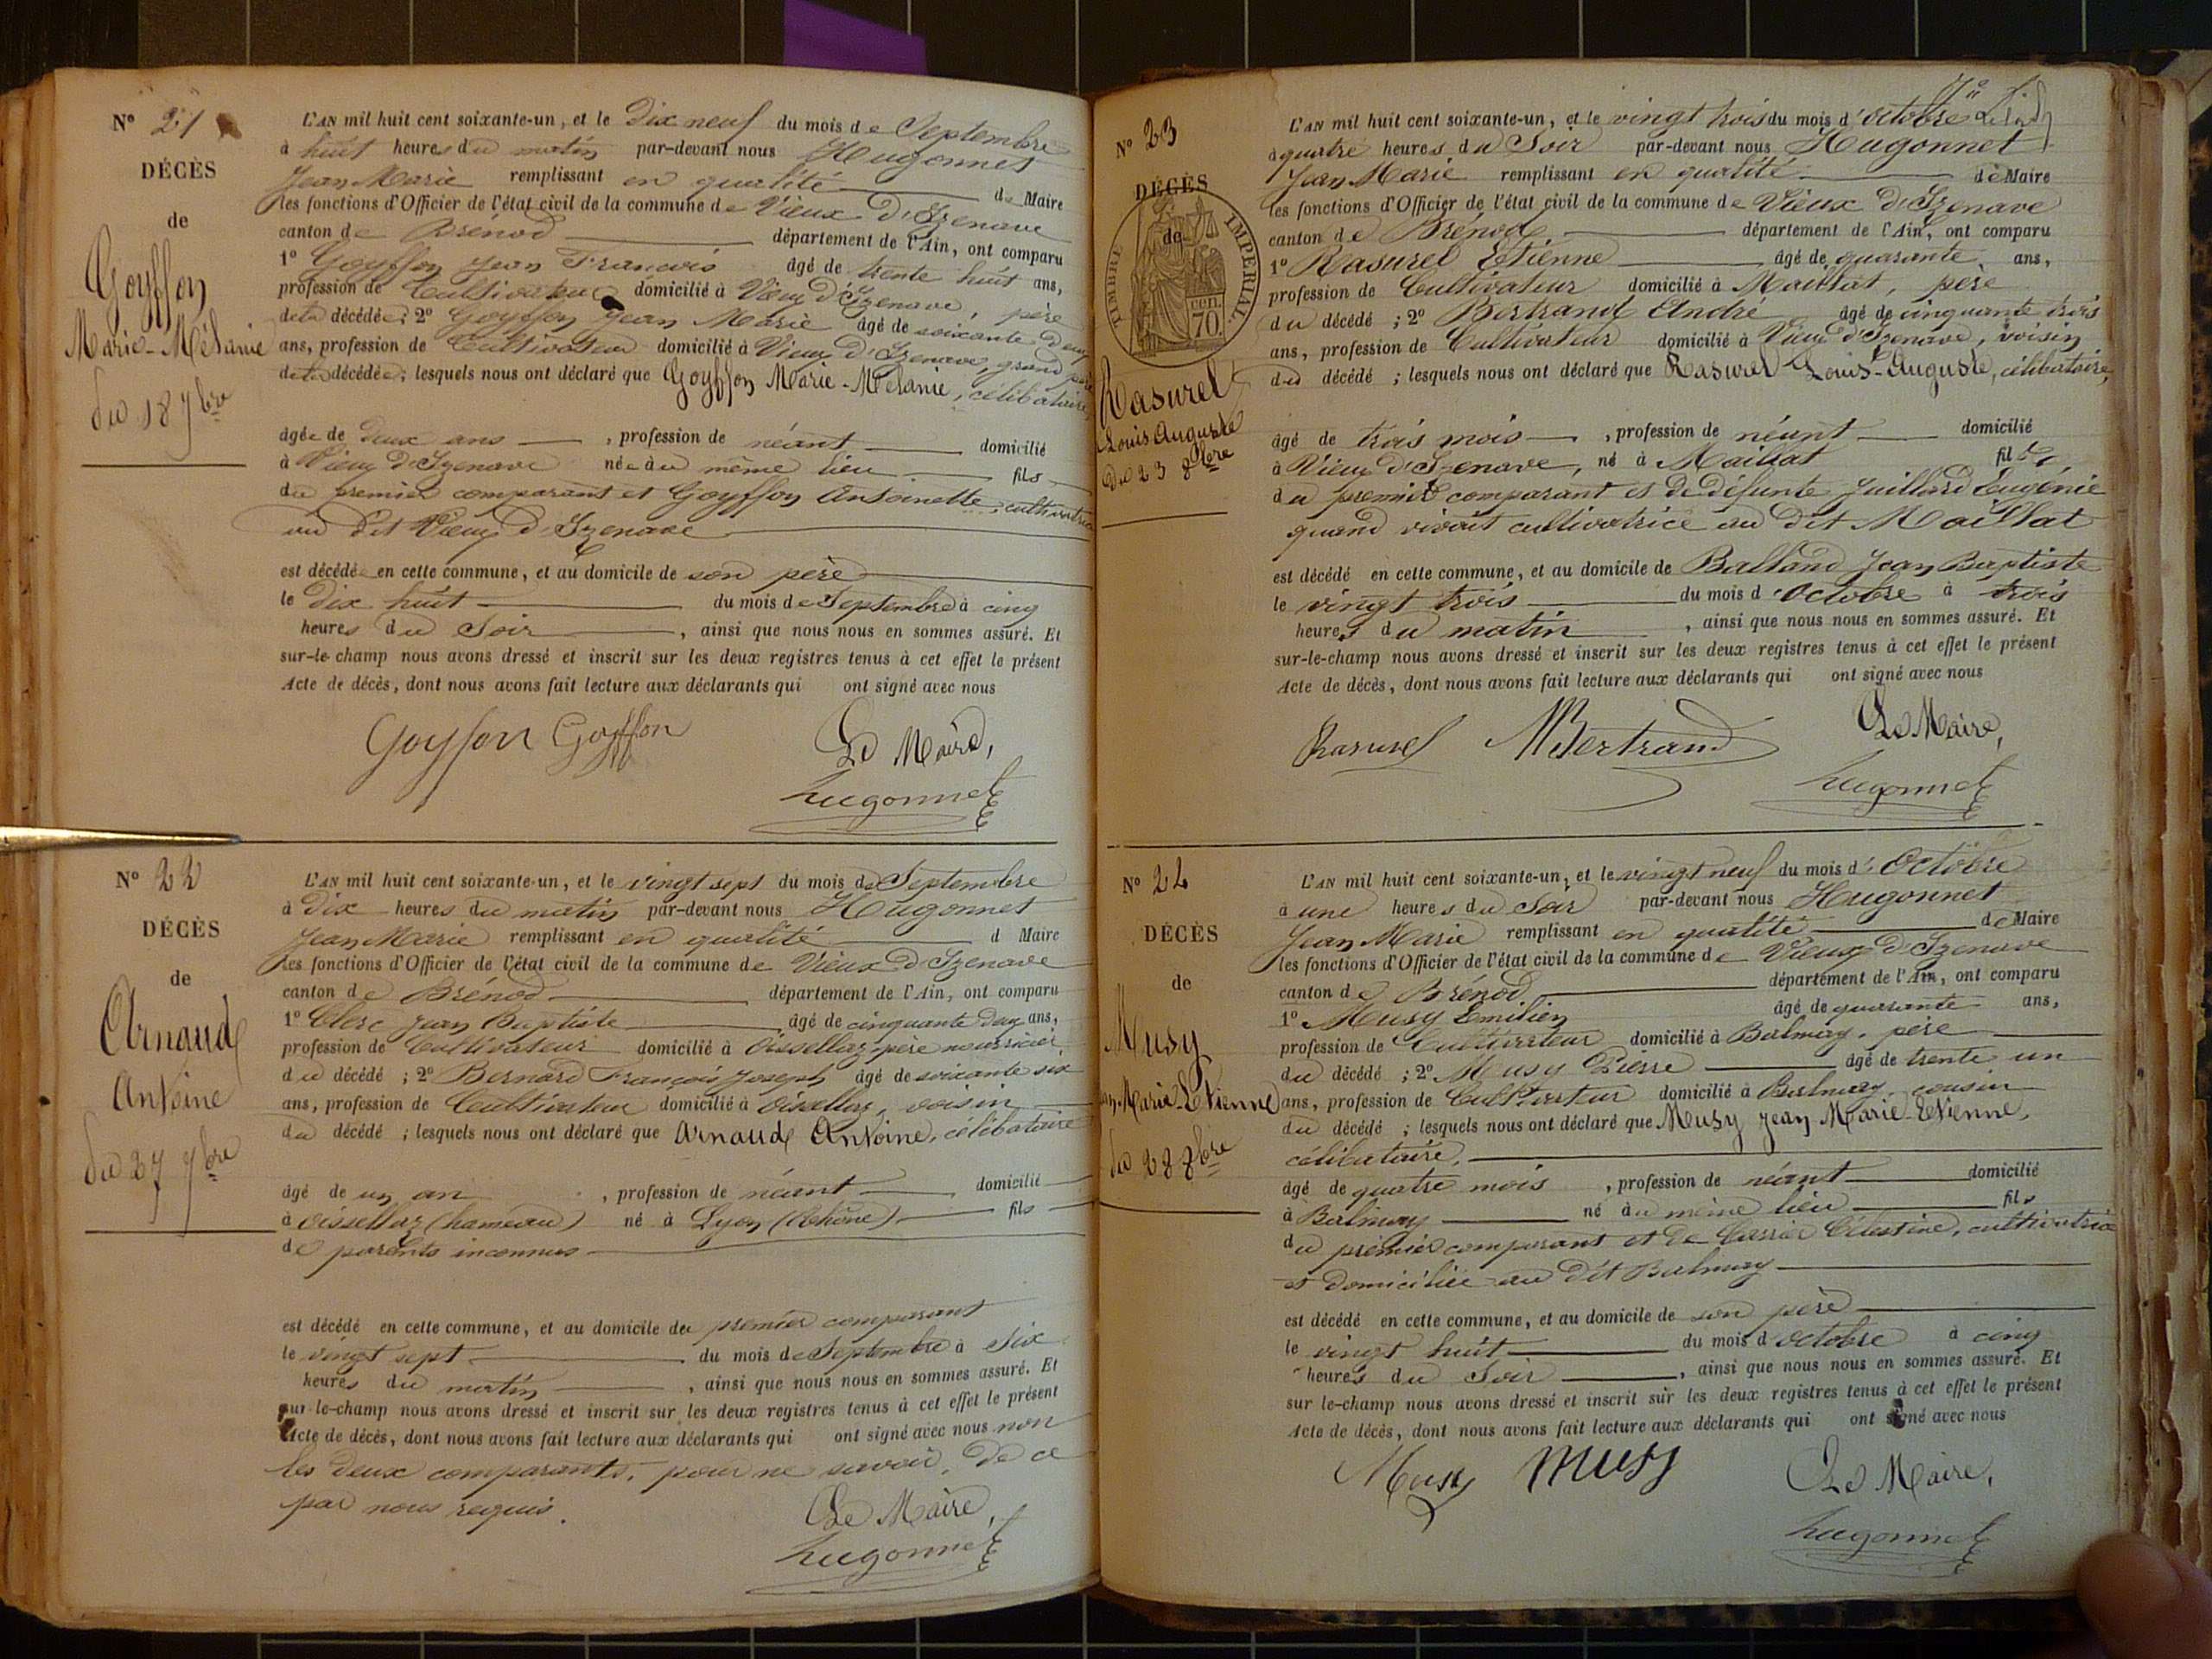 N° 21
DÉCÈS
de
Goyffon
Marie-Mélanie
du 18 7bre
L'AN mil huit cent soixante-un, et le Dix neuf du mois de Septembre
à huit heures du matin par-devant nous Hugonnet
Jean Marie remplissant en qualité de Maire
les fonctions d'Officier de l'état civil de la commune de Vieux d'Izenave
canton de Brénod département de l'Ain, ont comparu
1° Goyffon Jean François âgé de trente huit ans,
profession de Cultivateur domicilié à Vieux d'Izenave, père
de la décédée; 2° Goyffon Jean Marie âgé de soixante deux
ans, profession de Cultivateur domicilié à Vieux d'Izenave, grand père
de la décédée; lesquels nous ont déclaré que Goyffon Marie-Mélanie, célibataire,
âgée de deux ans , profession de néant domicilié
à Vieux d'Izenave née au même lieu fils
du premier comparant et Goyffon Antoinette, cultivatrice
au dit Vieux d'Izenave
est décédée en cette commune, et au domicile de son père
le Dix huit du mois de Septembre à cinq
heures du Soir , ainsi que nous nous en sommes assuré. Et
sur-le-champ nous avons dressé et inscrit sur les deux registres tenus à cet effet le présent
Acte de décès, dont nous avons fait lecture aux déclarants qui ont signé avec nous
Goyffon Goyffon Le Maire,
hugonnet
N° 22
DÉCÈS
de
Arnaud
Antoine
du 27 7bre
L'AN mil huit cent soixante-un, et le vingt sept du mois de Septembre
à Dix heures du matin par-devant nous Hugonnet
Jean Marie remplissant en qualité d Maire
les fonctions d'Officier de l'état civil de la commune de Vieux d'Izenave
canton de Brénod département de l'Ain, ont comparu
1° Clerc Jean Baptiste âgé de cinquante deux ans,
profession de Cultivateur domicilié à Oissellaz, père nourricier
du décédé ; 2° Bernard François Joseph âgé de soixante six
ans, profession de Cultivateur domicilié à Oisellaz, voisin
du décédé ; lesquels nous ont déclaré que Arnaud Antoine, célibataire
âgé de un an , profession de néant domicilié
à Oissellaz (hameau) né à Lyon (Rhône) fils
de parents inconnus
est décédé en cette commune, et au domicile du premier comparant
le vingt sept du mois de Septembre à Six
heures du matin , ainsi que nous nous en sommes assuré. Et
sur-le-champ nous avons dressé et inscrit sur les deux registres tenus à cet effet le présent
Acte de décès, dont nous avons fait lecture aux déclarants qui ont signé avec nous non
les deux comparants, pour ne savoir, de ce
par nous requis. Le Maire,
hugonnet
N° 23
DÉCÈS
de
TIMBRE IMPÉRIAL
cen. 70
Rasurel
Louis Auguste
du 23 8bre
L'AN mil huit cent soixante-un, et le vingt trois du mois d'Octobre
à quatre heures du Soir par-devant nous Hugonnet
Jean Marie remplissant en qualité de Maire
les fonctions d'Officier de l'état civil de la commune de Vieux d'Izenave
canton de Brénod département de l'Ain, ont comparu
1° Rasurel Etienne âgé de quarante ans,
profession de Cultivateur domicilié à Maillat, père
du décédé ; 2° Bertrand André âgé de cinquante trois
ans, profession de Cultivateur domicilié à Vieux d'Izenave, voisin
du décédé ; lesquels nous ont déclaré que Rasurel Louis-Auguste, célibataire,
âgé de trois mois , profession de néant domicilié
à Vieux d'Izenave, né à Maillat fils
du premier comparant et de défunte Juillard Eugénie
quand vivait cultivatrice au dit Maillat
est décédé en cette commune, et au domicile de Balland Jean Baptiste
le vingt trois du mois d'Octobre à trois
heures du matin , ainsi que nous nous en sommes assuré. Et
sur-le-champ nous avons dressé et inscrit sur les deux registres tenus à cet effet le présent
Acte de décès, dont nous avons fait lecture aux déclarants qui ont signé avec nous
Rasurel Bertrand Le Maire,
hugonnet
N° 24
DÉCÈS
de
Musy
Jean-Marie-Etienne
du 28 8bre
L'AN mil huit cent soixante-un, et le vingt neuf du mois d'Octobre
à une heures du Soir par-devant nous Hugonnet
Jean Marie remplissant en qualité de Maire
les fonctions d'Officier de l'état civil de la commune de Vieux d'Izenave
canton de Brénod département de l'Ain, ont comparu
1° Musy Emilien âgé de quarante ans,
profession de Cultivateur domicilié à Balmay, père
du décédé ; 2° Musy Pierre âgé de trente un
ans, profession de Cultivateur domicilié à Balmay, cousin
du décédé ; lesquels nous ont déclaré que Musy Jean Marie-Etienne,
célibataire,
âgé de quatre mois , profession de néant domicilié
à Balmay né au même lieu fils
du premier comparant et de Célestine, cultivatrice
et domiciliée au dit Balmay
est décédé en cette commune, et au domicile de son père
le vingt huit du mois d octobre à cinq
heures du Soir , ainsi que nous nous en sommes assuré. Et
sur le-champ nous avons dressé et inscrit sur les deux registres tenus à cet effet le présent
Acte de décès, dont nous avons fait lecture aux déclarants qui ont signé avec nous
Musy Musy Le Maire,
hugonnet